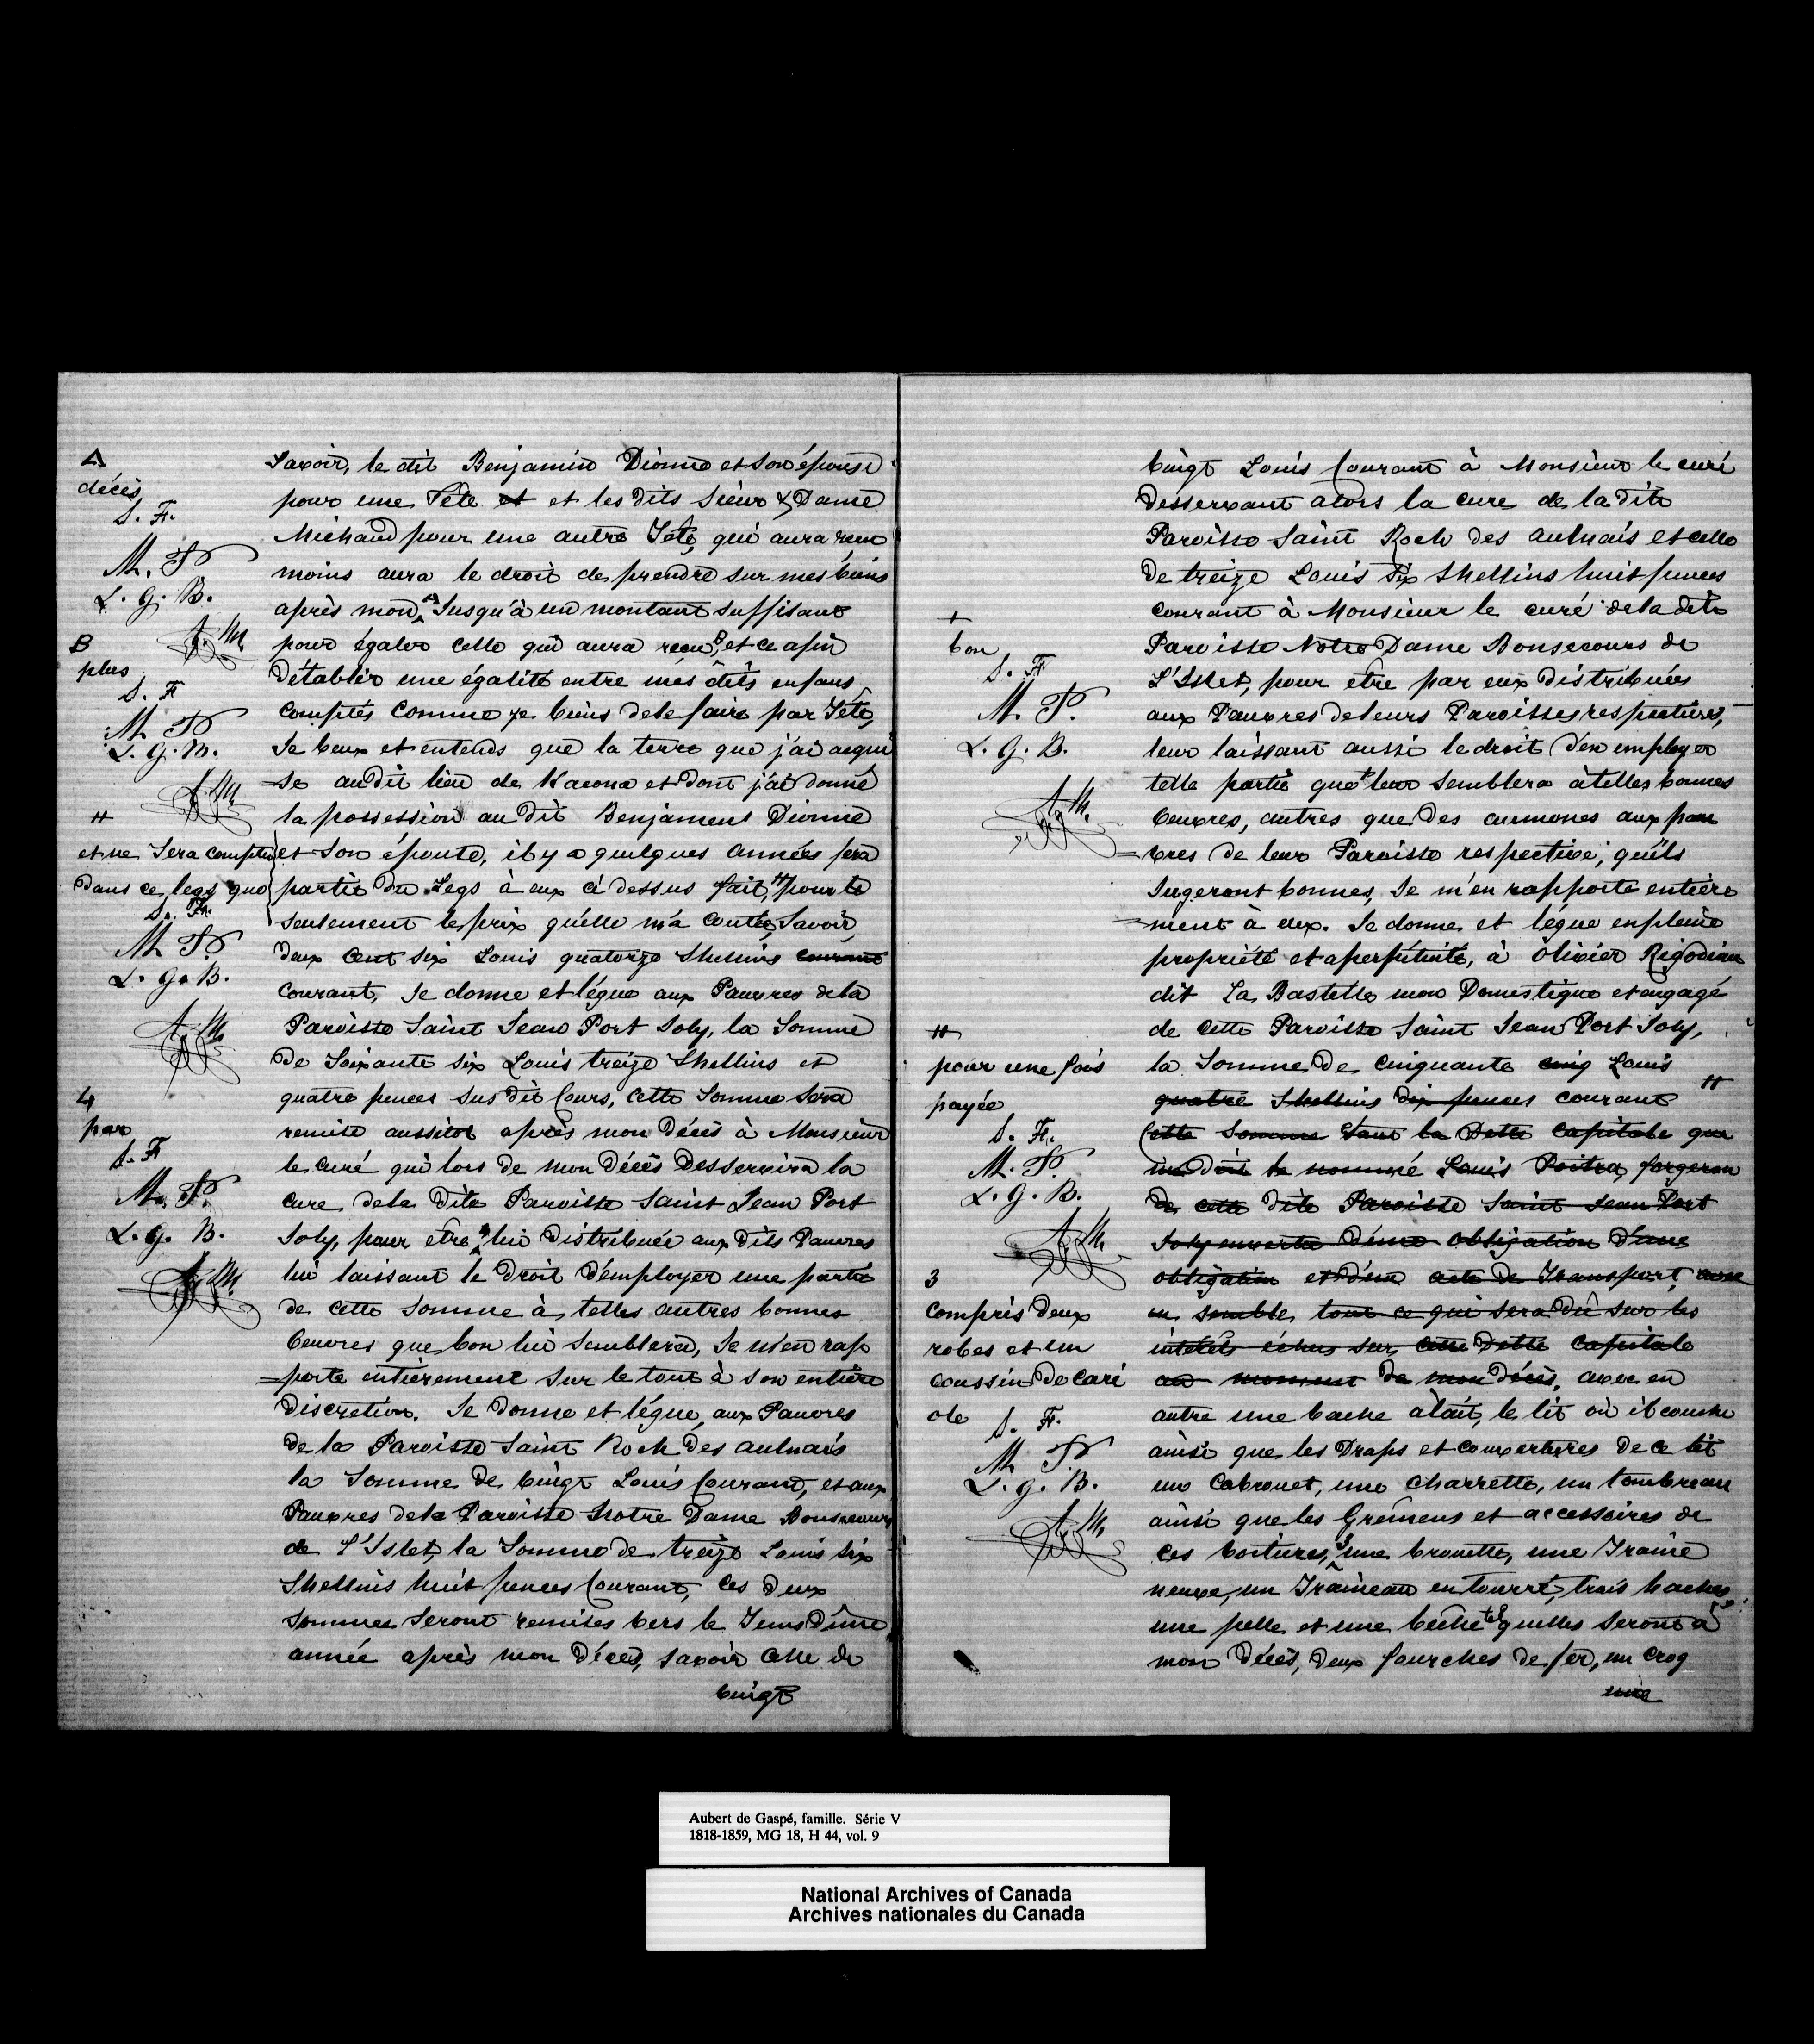 A
décès
S. F.
M. P.
L. G. B.
B
plus
S. F
M. P
L. G. B.
H
et ne sera comptée
dans ce legs que
S. F.
M. P.
L. G. B.
4
par
S. F
M. P.
L. G. B.
Savoir, le dit Benjamin Dionne et son épouse
pour une Tête et et les dits Sieur & Dame
Michaud pour une autre Tête, qui aura reçu
moins aura le droit de prendre sur mes biens
après mon A Jusqu'à un montant suffisant
pour égaler celle qui aura reçu B, et ce afin
d'établir une égalité entre mes dits enfans
comptés comme je viens de le faire par Tête,
Je veux et entends que la terre que j'ai acqui
=se au dit lieu de Kacona et dont j'ai donné
la possession au dit Benjamenl Dionne
et son épouse, il y a quelques années sera
partie du Legs à eux ci dessus fait, H pour le
seulement le prix qu'elle m'a coutée, Savoir,
deux cent six Louis quatorze Shellins courant
courant, Je donne et légue aux Pauvres de la
Paroisse Saint Jean Port Joly, la Somme
de Soixante six Louis treize Shellins et
quatre pences sus dit Cours, cette Somme sera
remise aussitot après mon décès à Monsieur
le curé qui lors de mon Décès desservira la
cure de la dite Paroisse Saint Jean Port
Joly, pour etre 4 lui distribuée aux dits Pauvres
lui laissant le droit d'employer une partie
de cette somme à telles autres bonnes
Oeuvres que bon lui semblera, Je m'en rap
=porte entièrement sur le tout à son entière
discretion. Je donne et légue, aux Pauvres
de la Paroisse Saint Roch des aulnais
la Somme de vingt Louis Courant, et aux
Pauvres de la Paroisse Notre Dame Bonsecours
de L'Islet, la Somme de treize Louis six
Shellins huit pences Courant, ces deux
sommes seront remises vers le Tems d'une
année après mon Décès, savoir celle de
vingt
+
bon
S. F
M. P.
L. G. B.
H
pour une fois
payée
S. F.
M. P.
L. G. B.
3
compris deux
robes et un
coussin de cari
ole
S. F.
M. P
L. G. B.
vingt Louis Courant à Monsieur le curé
desservant alors la cure de la dite
Paroisse Saint Roch des aulnais et celle
de treize Louis Six Shellins huit pences
courant à Monsieur le curé de la dite
Paroisse Notre Dame Bonsecours de
L'Islet, pour etre par eux distribuées
aux Pauvres de leurs Paroisses respectives,
leur laissant aussi le droit d'en employer
telle partie que + leur semblera à telles bonnes
Oeuvres, autres que des aumones aux pau
=vres de leur Paroisse respective, qu'ils
Jugeront bonnes, Je m'en rapporte entière
=ment à eux. Je donne et légue en pleine
propriété et aperpétuité, à Olivier Rigodiau
dit La Bastelle mon Domestique et engagé
de cette Paroisse Saint Jean Port Joly,
la Somme de cinquante cinq Louis
quatre Shellins dix pences courant H
Cette Somme étant la Dette Capitale que
me doit le nommé Louis Poitra, forgeron
de cette dite Paroisse Saint Jean Port
Joly en vertu d'une obligation d'une
obligation et d'un acte de Transport, avec
en semble tout ce qui sera dû sur les
intérêts échus sur cette Dette Capitale
au moment de mon décès, avec en
autre une vache à lait, le lit où il couche
ainsi que les Draps et couvertures de ce lit
un Cabrouet, une charrette, un tombreau
ainsi que les Gréments et accessoires de
ces voitures, 3 une brouette, une Traine
neuve, un Traineau en tourré, trois haches
une pelle et une beche tel quelles seront à
mon Décès, deux fourches de fer, un crog
une
Aubert de Gaspé, famille. Série V
1818-1859, MG 18, H 44, vol. 9
National Archives of Canada
Archives nationales du Canada